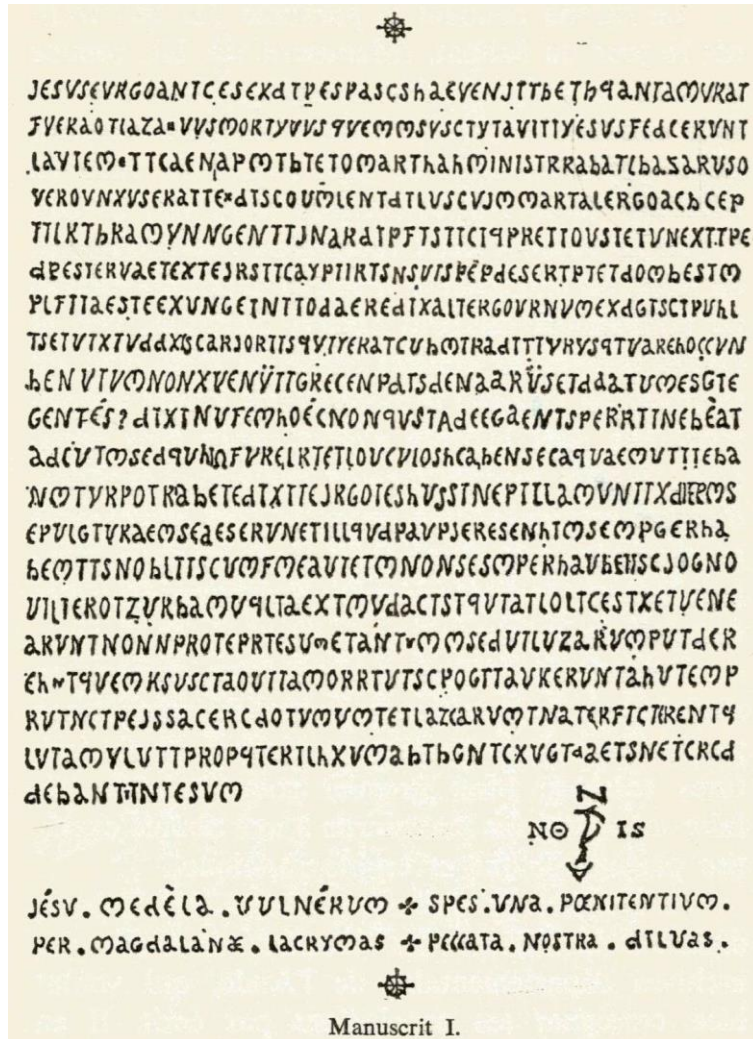 JESVSEVRGOANTCESEXdTPESPASCShaEVENJTTbEThqANTAMVRAT
FVERAOTIAZA▪VVSMORTYVVSqVEMMSVSCTYTAVITIYESVSFEdCERVNT
LAVTEM•TTCAENAPMTbTETOMARThAhMINISTRRAbATLbAZARVSO
VEROVNXVSERATTE×dTSCOVMLENTdTLVSCVJMMARTALERGOACbCEP
TTLKThRAMYNNGENTTJNARdTPFTSTTCIqPRETTOVSTETVNEXTTPE
dPESTERVAETEXTEJRSTTCAYPTIRTSNSVISPÉPdESERTPTETdOMbESTM
PLFITAESTEEXVNGETNTTOdAEREdTXALTERGOVRNVMEXdGTSCTPVhL
TSETVTXTVddXGSCARJORTISqVTYERATCVhMTRAdTTTVRVSqTVAREhOCCVN
bENVTVMNONXVENVTTGRECENPdTSdENAARVSETdAATVMESGTE
GENTÉS?dTXTNVFEMhOÉCNONqVSTAdEEGAENTSPERRTINEbÈAT
AdCVTMSEdqVhNFVRELRTETLOVCVIOShCAbENSECAqVAEMVTTTEbA
NMTVRPOTRAbETEdTXTTEJRGOTEShVSSTNEPTLLAMVNTTXdTEPMS
EPVLGTVRAEMSEAESERVNETILLqVdPAVPJERESENhTMSEMPGERhA
bEMTTSNObLTTSCVMFMEAVTETMNONSESMPERhAVbEllSCJOGNO
VILTEROTZVRbAMVqLTAEXTMVdACTSTqVTATLOLTCESTXETVENE
ARVNTNONNPROTEPRTESVMETANT•MMSEdVTLVZARVMPVTdER
Eh•TqVEMKSVSCTAOVTTAMORRTVTSCPOGTTAVKERVNTAhVTEMP
RVTNCTPEJSSACERCdOTVMVMTETLAZCARVMTNATERFTCTRRENTq
LVTAMYLVTTPROPqTERTLhXVMAbThGNTCXVGTdAETSNETCRCd
dEbANTTNTESVM
N
NO IS
A
JÉSV . MEdÈLA . VVLNÉRVM ✣ SPES . VNA . PŒNITENTIVM .
PER . MAGdALANÆ . LACRYMAS ✣ PECCATA . NOSTRA . dILVAS .
Manuscrit I.